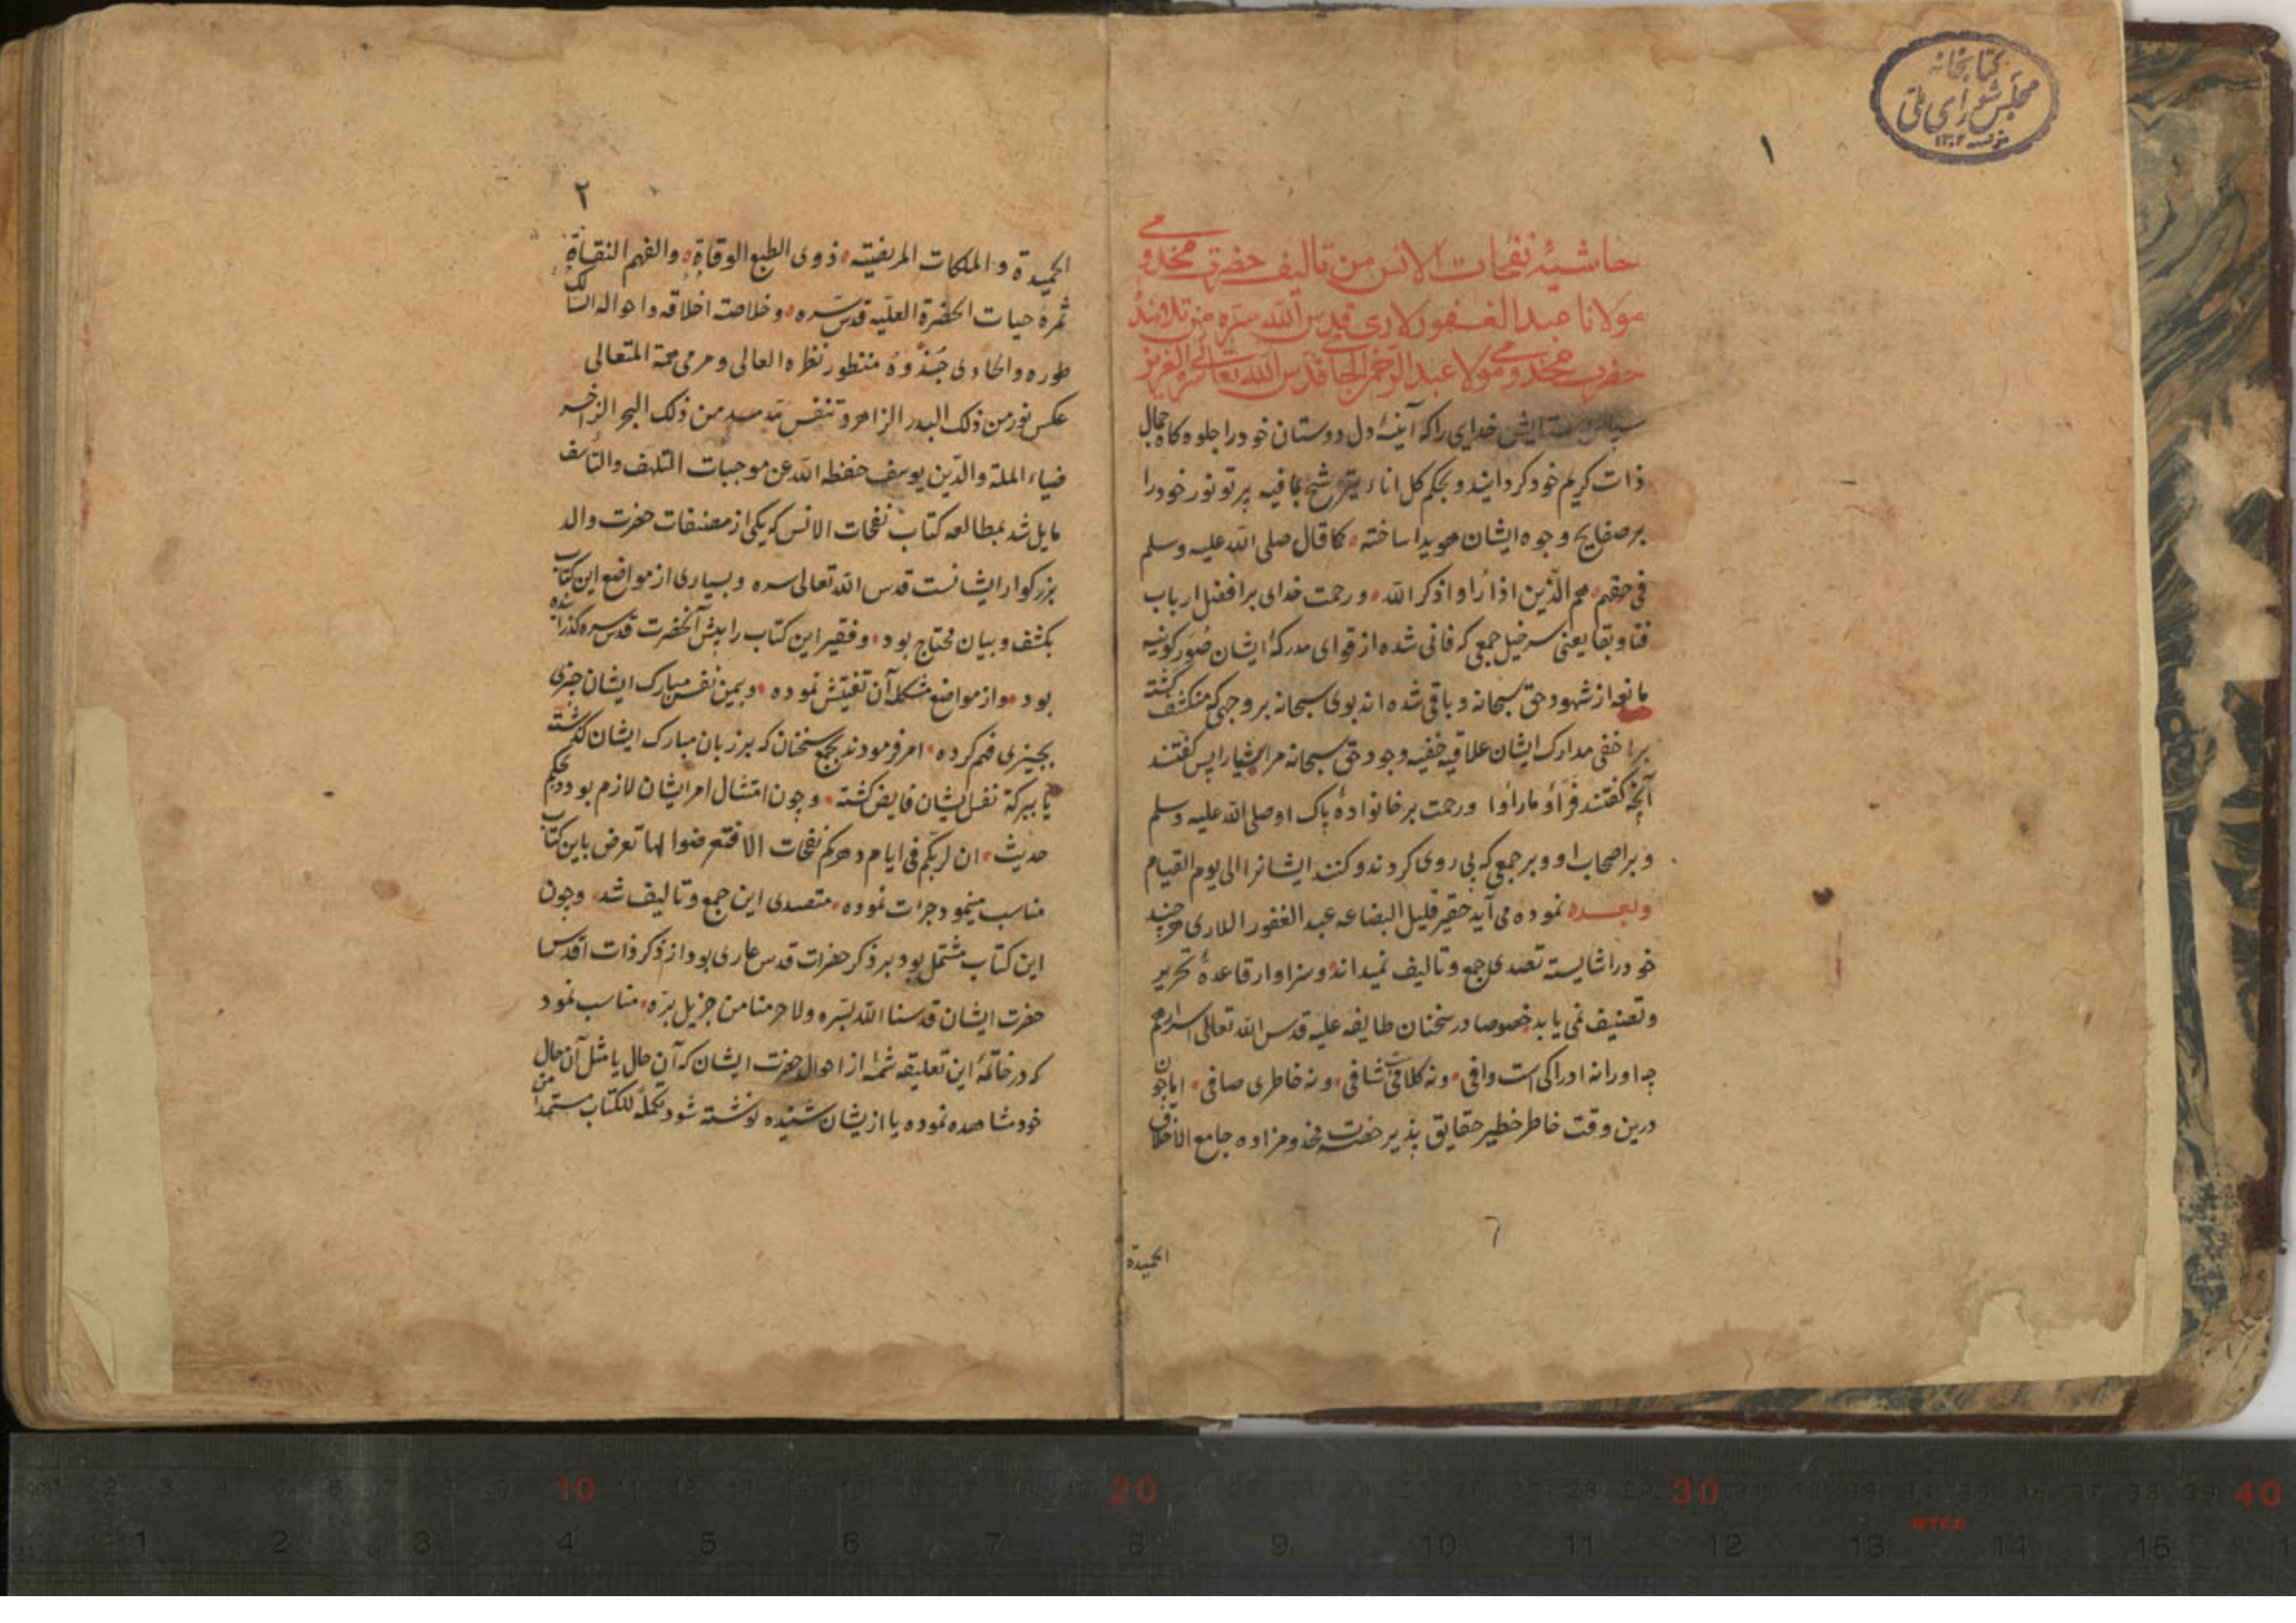 کتابخانه
مجلس شورای ملی
۱۳۰۲
۱
حاشیهٔ نفحات الانس من تالیف حضرت مخدومی
مولانا عبد الغفور لاری قدس الله سره من تلامذهٔ
حضرت مخدومی مولانا عبد الرحمن الجامی قدس الله تعالی سره العزیز
سپاس و ستایش خدای را که آینهٔ دل دوستان خود را جلوه کاه جمال
ذات کریم خود کردانیده و بحکم کل اناء یترشح بما فیه پرتو نور خود را
بر صفایح وجوه ایشان هویدا ساخته کما قال صلی الله علیه وسلم
فی حقهم هم الذین اذا رأوا ذکر الله و رحمت خدای بر افضل ارباب
فنا و بقا یعنی سرخیل جمعی که فانی شده از قوای مدرکهٔ ایشان صور کونیه
مانعه از شهود حق سبحانه و باقی شده اند بوی سبحانه بر وجهی که منکشف کشته
بر اخفی مدارک ایشان علاقهٔ خفیه وجود حق سبحانه مر اشیا را پس کفتند
آنچه کفتند و رحمت بر خانوادهٔ پاک او صلی الله علیه وسلم
و بر اصحاب او و بر جمعی که پی روی کردند و کنند ایشانرا الی یوم القیام
و بعده نموده می آید حقیر قلیل البضاعه عبد الغفور اللاری هر چند
خود را شایسته تصدی جمع و تالیف نمیداند و سزاوار قاعدهٔ تحریر
و تصنیف نمی یابد خصوصا در سخنان طایفه علیه قدس الله تعالی اسرارهم
چه او را نه ادراکی است وافی و نه کلامی شافی و نه خاطری صافی اما چون
درین وقت خاطر خطیر حقایق پذیر حضرت مخدوم زاده جامع الاخلاق
الحمیدة
۲
الحمیدة و الملکات المرضیته ذوی الطبع الوقادة و الفهم النقادة
ثمرهٔ حیات الحضرة العلیه قدس سره و خلاصته اخلاقه و احواله السالک
طوره و الحاوی حذوه منظور نظره العالی و مرمی همته المتعالی
عکس نور من ذلک البدر الزاهر و تنفس من ذلک البحر الزاخر
ضیاء الملة والدین یوسف حفظه الله عن موجبات التلهف والتاسف
مایل شد بمطالعه کتاب نفحات الانس که یکی از مصنفات حضرت والد
بزرکوار ایشانست قدس الله تعالی سره و بسیاری از مواضع این کتاب
بکشف و بیان محتاج بود و فقیر این کتاب را پیش آنحضرت قدس سره کذرانیده
بود و از مواضع مشکله آن تفتیش نموده و بیمن نفس مبارک ایشان چیزی
بچیزی فهم کرده امر فرمودند بجمع سخنان که بر زبان مبارک ایشان کذشته
یا ببرکة نفس ایشان فایض کشته و چون امتثال امر ایشان لازم بود و بحکم
حدیث ان لربکم فی ایام دهرکم نفحات الا فتعرضوا لها تعرض باین کتاب
مناسب مینمود جرات نموده متصدی این جمع و تالیف شد و چون
این کتاب مشتمل بود بر ذکر حضرات قدس عاری بود از ذکر ذات اقدس
حضرت ایشان قدسنا الله بسره ولا حرمنا من جزیل بره مناسب نمود
که در خاتمهٔ این تعلیقه شمهٔ از احوال حضرت ایشان که آن حال یا مثل آن حال
خود مشاهده نموده یا از یشان شنیده نوشته شود تکملة للکتاب مستمدا من